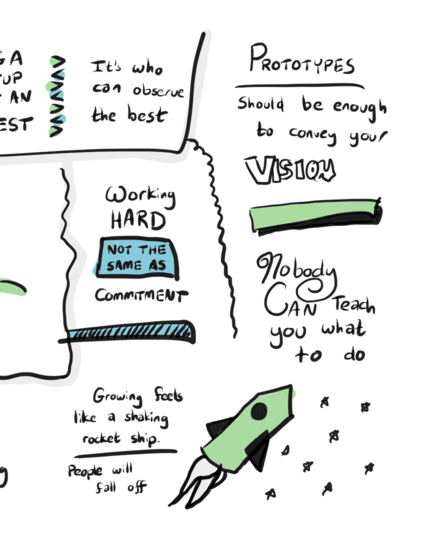 G A
UP
AN
EST
It's who
can observe
the best
PROTOTYPES
Should be enough
to convey your
VISION
Working
HARD
NOT THE
SAME AS
COMMITMENT
Nobody
CAN Teach
you what
to do
Growing feels
like a shaking
rocket ship.
People will
fall off